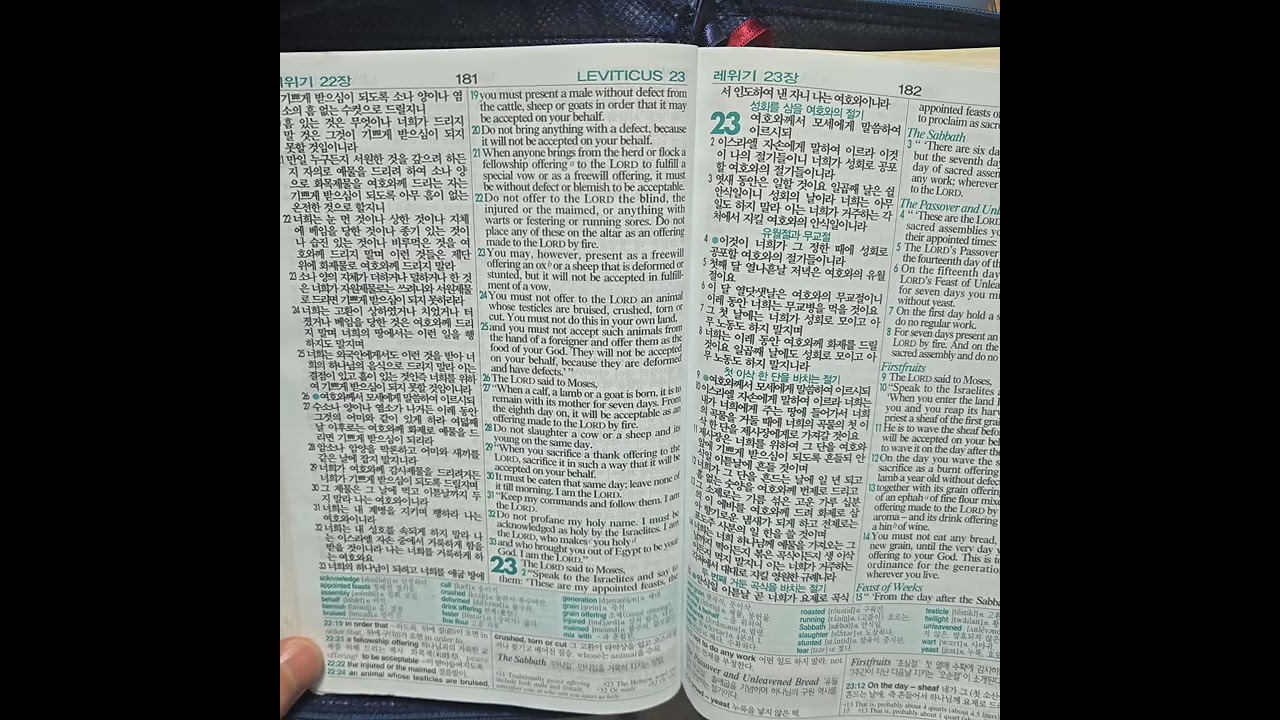 레위기 22장
181
LEVITICUS 23
기쁘게 받으심이 되도록 소나 양이나 염
소의 흠 없는 수컷으로 드릴지니
흠 있는 것은 무엇이나 너희가 드리지
말 것은 그것이 기쁘게 받으심이 되지
못할 것임이니라
만일 누구든지 서원한 것을 갚으려 하든
지 자의로 예물을 드리려 하여 소나 양
으로 화목제물을 여호와께 드리는 자는
기쁘게 받으심이 되도록 아무 흠이 없는
온전한 것으로 할지니
22 너희는 눈 먼 것이나 상한 것이나 지체
에 베임을 당한 것이나 종기 있는 것이
나 습진 있는 것이나 비루먹은 것을 여
호와께 드리지 말며 이런 것들은 제단
위에 화제물로 여호와께 드리지 말라
23 소나 양의 지체가 더하거나 덜하거나 한 것
은 너희가 자원제물로는 쓰려니와 서원제물
로 드리면 기쁘게 받으심이 되지 못하리라
24 너희는 고환이 상하였거나 치었거나 터
졌거나 베임을 당한 것은 여호와께 드리
지 말며 너희의 땅에서는 이런 일을 행
하지도 말지며
25 너희는 외국인에게서도 이런 것을 받아 너
희의 하나님의 음식으로 드리지 말라 이는
결점이 있고 흠이 있는 것인즉 너희를 위하
여 기쁘게 받으심이 되지 못할 것임이니라
26 ●여호와께서 모세에게 말씀하여 이르시되
27 수소나 양이나 염소가 나거든 이레 동안
그것의 어미와 같이 있게 하라 여덟째
날 이후로는 여호와께 화제로 예물을 드
리면 기쁘게 받으심이 되리라
28 암소나 암양을 막론하고 어미와 새끼를
같은 날에 잡지 말지니라
29 너희가 여호와께 감사제물을 드리려거든
너희가 기쁘게 받으심이 되도록 드릴지며
30 그 제물은 그 날에 먹고 이튿날까지 두
지 말라 나는 여호와이니라
31 너희는 내 계명을 지키며 행하라 나는
여호와이니라
32 너희는 내 성호를 속되게 하지 말라 나
는 이스라엘 자손 중에서 거룩하게 함을
받을 것이니라 나는 너희를 거룩하게 하
는 여호와요
33 너희의 하나님이 되려고 너희를 애굽 땅에
19 you must present a male without defect from
the cattle, sheep or goats in order that it may
be accepted on your behalf.
20 Do not bring anything with a defect, because
it will not be accepted on your behalf.
21 When anyone brings from the herd or flock a
fellowship offering a to the LORD to fulfill a
special vow or as a freewill offering, it must
be without defect or blemish to be acceptable.
22 Do not offer to the LORD the blind, the
injured or the maimed, or anything with
warts or festering or running sores. Do not
place any of these on the altar as an offering
made to the LORD by fire.
23 You may, however, present as a freewill
offering an ox b or a sheep that is deformed or
stunted, but it will not be accepted in fulfill-
ment of a vow.
24 You must not offer to the LORD an animal
whose testicles are bruised, crushed, torn or
cut. You must not do this in your own land,
25 and you must not accept such animals from
the hand of a foreigner and offer them as the
food of your God. They will not be accepted
on your behalf, because they are deformed
and have defects.' "
26 The LORD said to Moses,
27 "When a calf, a lamb or a goat is born, it is to
remain with its mother for seven days. From
the eighth day on, it will be acceptable as an
offering made to the LORD by fire.
28 Do not slaughter a cow or a sheep and its
young on the same day.
29 "When you sacrifice a thank offering to the
LORD, sacrifice it in such a way that it will be
accepted on your behalf.
30 It must be eaten that same day; leave none of
it till morning. I am the LORD.
31 "Keep my commands and follow them. I am
the LORD.
32 Do not profane my holy name. I must be
acknowledged as holy by the Israelites. I am
the LORD, who makes you holy
33 and who brought you out of Egypt to be your
God. I am the LORD."
23 The LORD said to Moses,
2 "Speak to the Israelites and say to
them: 'These are my appointed feasts, the
acknowledge
appointed feasts
assembly
behalf
blemish
bruised
calf
crushed
deformed
drink offering
fester
fine flour
generation
grain
grain offering
injured
maimed
mix with
22:19 in order that
22:21 a fellowship offering
to be acceptable
22:22 the injured or the maimed
22:24 an animal whose testicles are bruised,
crushed, torn or cut
The Sabbath
레위기 23장
182
서 인도하여 낸 자니 나는 여호와이니라
성회를 삼을 여호와의 절기
23 여호와께서 모세에게 말씀하여
이르시되
2 이스라엘 자손에게 말하여 이르라 이것
이 나의 절기들이니 너희가 성회로 공포
할 여호와의 절기들이니라
3 엿새 동안은 일할 것이요 일곱째 날은 쉴
안식일이니 성회의 날이라 너희는 아무
일도 하지 말라 이는 너희가 거주하는 각
처에서 지킬 여호와의 안식일이니라
유월절과 무교절
4 ●이것이 너희가 그 정한 때에 성회로
공포할 여호와의 절기들이니라
5 첫째 달 열나흗날 저녁은 여호와의 유월
절이요
6 이 달 열닷샛날은 여호와의 무교절이니
이레 동안 너희는 무교병을 먹을 것이요
7 그 첫 날에는 너희가 성회로 모이고 아
무 노동도 하지 말지며
8 너희는 이레 동안 여호와께 화제를 드릴
것이요 일곱째 날에도 성회로 모이고 아
무 노동도 하지 말지니라
첫 이삭 한 단을 바치는 절기
9 ●여호와께서 모세에게 말씀하여 이르시되
10 이스라엘 자손에게 말하여 이르라 너희는
내가 너희에게 주는 땅에 들어가서 너희
의 곡물을 거둘 때에 너희의 곡물의 첫 이
삭 한 단을 제사장에게로 가져갈 것이요
11 제사장은 너희를 위하여 그 단을 여호와
앞에 기쁘게 받으심이 되도록 흔들되 안
식일 이튿날에 흔들 것이며
12 너희가 그 단을 흔드는 날에 일 년 되고
흠 없는 숫양을 여호와께 번제로 드리고
그 소제로는 기름 섞은 고운 가루 십분
의 이 에바를 여호와께 드려 화제로 삼
아 향기로운 냄새가 되게 하고 전제로는
포도주 사분의 일 힌을 쓸 것이며
너희는 너희 하나님께 예물을 가져오는 그
날까지 떡이든지 볶은 곡식이든지 생 이삭
이든지 먹지 말지니 이는 너희가 거주하는
각처에서 대대로 지킬 영원한 규례니라
두 번째 거둔 곡식을 바치는 절기
안식일 이튿날 곧 너희가 요제로 곡식
appointed feasts o
to proclaim as sacre
The Sabbath
3 " 'There are six da
but the seventh day
day of sacred assem
any work; wherever
to the LORD.
The Passover and Unl
4 " 'These are the LORD
sacred assemblies yo
their appointed times:
5 The LORD's Passover
the fourteenth day of th
6 On the fifteenth day
LORD's Feast of Unlea
for seven days you mu
without yeast.
7 On the first day hold a s
do no regular work.
8 For seven days present an
LORD by fire. And on the
sacred assembly and do no
Firstfruits
9 The LORD said to Moses,
10 "Speak to the Israelites a
'When you enter the land I
you and you reap its harv
priest a sheaf of the first grai
11 He is to wave the sheaf before
will be accepted on your beh
to wave it on the day after the
12 On the day you wave the s
sacrifice as a burnt offering
lamb a year old without defec
13 together with its grain offering
of an ephah of fine flour mixe
offering made to the LORD by
aroma – and its drink offering
a hin of wine.
14 You must not eat any bread,
new grain, until the very day y
offering to your God. This is to
ordinance for the generation
wherever you live.
Feast of Weeks
15 " 'From the day after the Sabba
roasted
running
Sabbath
slaughter
stunted
tear
testicle
twilight
unleavened
wart
yeast
to do any work 어떤 일도 하지 말라.
Passover and Unleavened Bread
yeast 누룩을 넣지 않은 떡
Firstfruits
23:12 On the day – sheaf